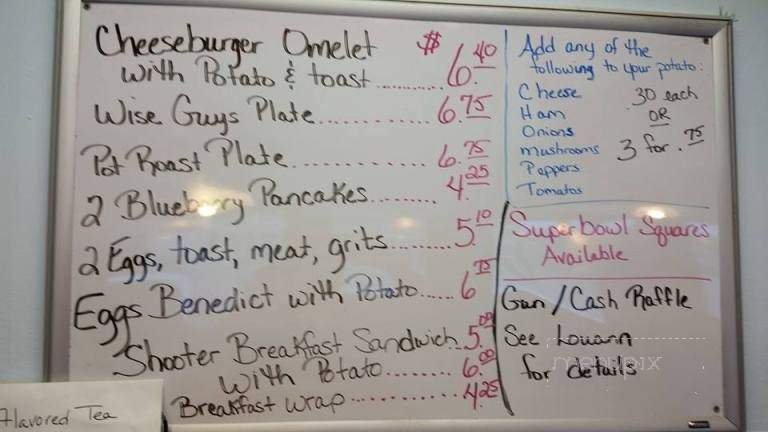 Cheeseburger Omelet $
with Potato & toast.......... 6.40
Wise Guys Plate............ 6.75
Pot Roast Plate............ 6.75
2 Blueberry Pancakes........ 4.25
2 Eggs, toast, meat, grits........ 5.10
Eggs Benedict with Potato..... 6.75
Shooter Breakfast Sandwich. 5.00
With Potato........ 6.00
Breakfast wrap........... 4.25
Add any of the
following to your potato:
Cheese .30 each
Ham OR
Onions
mushrooms 3 for .75
Peppers
Tomatos
Superbowl Squares
Available
Gun / Cash Raffle
See Louann
for details
menupix
Flavored Tea